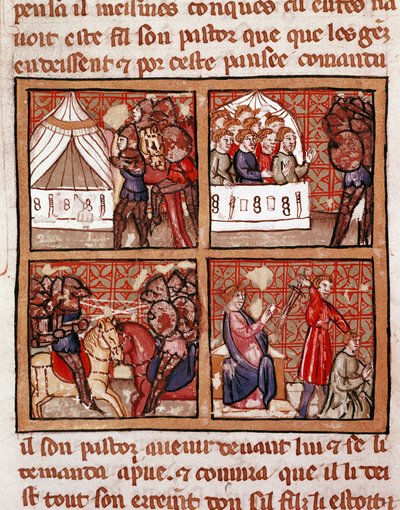 pensa il meismes conques al entes na
uoit este fil son pastor que que les gēz
enteissent ⁊ por ceste pansee comanda
il son pastor auenir deuant lui ⁊ se li
demanda apriue. ⁊ coniura que il li dei
st tout son errement don sil filz li estoit